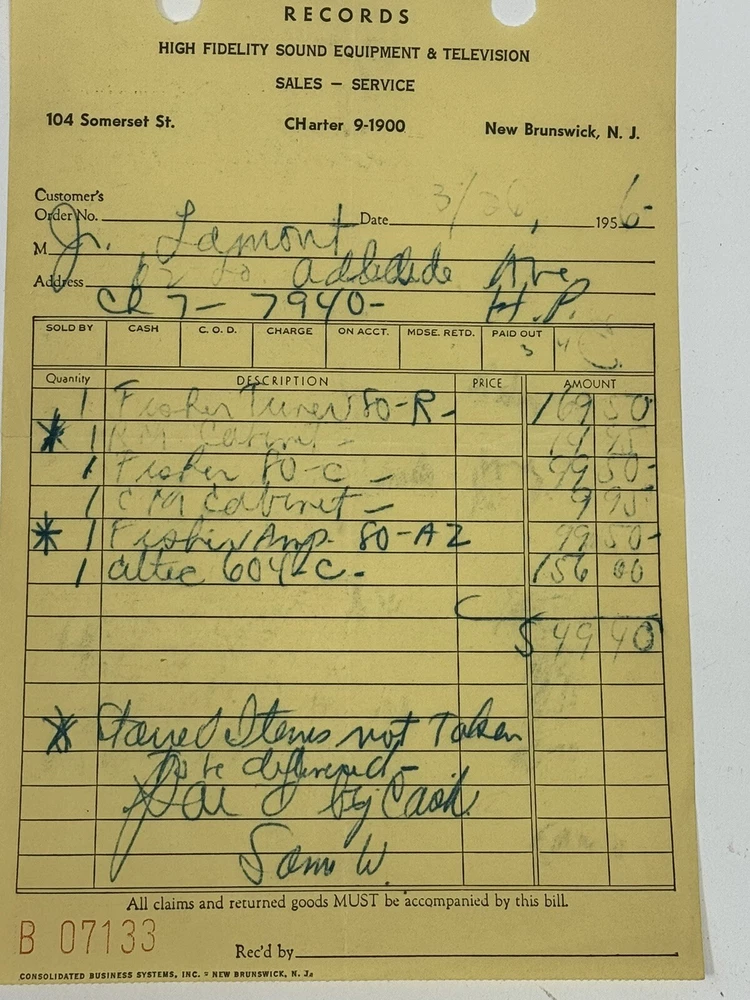 RECORDS
HIGH FIDELITY SOUND EQUIPMENT & TELEVISION
SALES — SERVICE
104 Somerset St. CHarter 9-1900 New Brunswick, N. J.
Customer's
Order No. Date 3/26, 1956
M Jr. Lamont
Address Adelaide Ave
CH 7-7940- H.P.
SOLD BY CASH C. O. D. CHARGE ON ACCT. MDSE. RETD. PAID OUT
Quantity DESCRIPTION PRICE AMOUNT
1 Fisher Tuner 80-R- 169 50
* 1 Cabinet -
1 Fisher 80-C - 99 50-
1 CM Cabinet - 9 95
* 1 Fisher Amp- 80-AZ 99 50-
1 Altec 604-C- 156 00
549 40
* Starred Items not Taken
To be
Paid by Cash
Sam W.
All claims and returned goods MUST be accompanied by this bill.
B 07133
Rec'd by
CONSOLIDATED BUSINESS SYSTEMS, INC. - NEW BRUNSWICK, N. J.